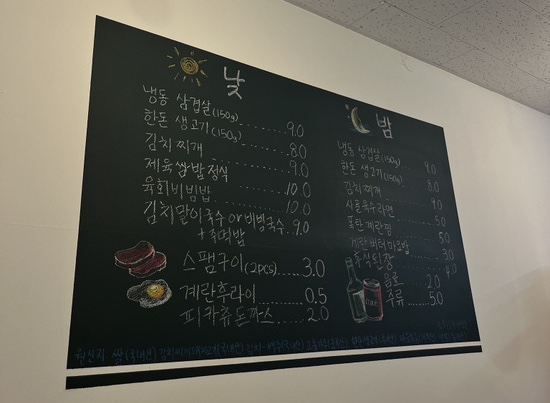 낮
냉동 삼겹살(150g) 9.0
한돈 생고기(150g) 8.0
김치찌개 9.0
제육쌈밥 정식 10.0
육회비빔밥 10.0
김치말이국수 or 비빔국수 9.0
+ 주먹밥
스팸구이(2pcs) 3.0
계란후라이 0.5
피카츄돈까스 2.0
밤
냉동 삼겹살(150g) 9.0
한돈 생고기(150g) 8.0
김치찌개 9.0
사골육수라면 5.0
폭탄계란찜 5.0
계란버터마요밥 3.0
된장 4.0
음료 2.0
주류 5.0
원산지 쌀(국내산)